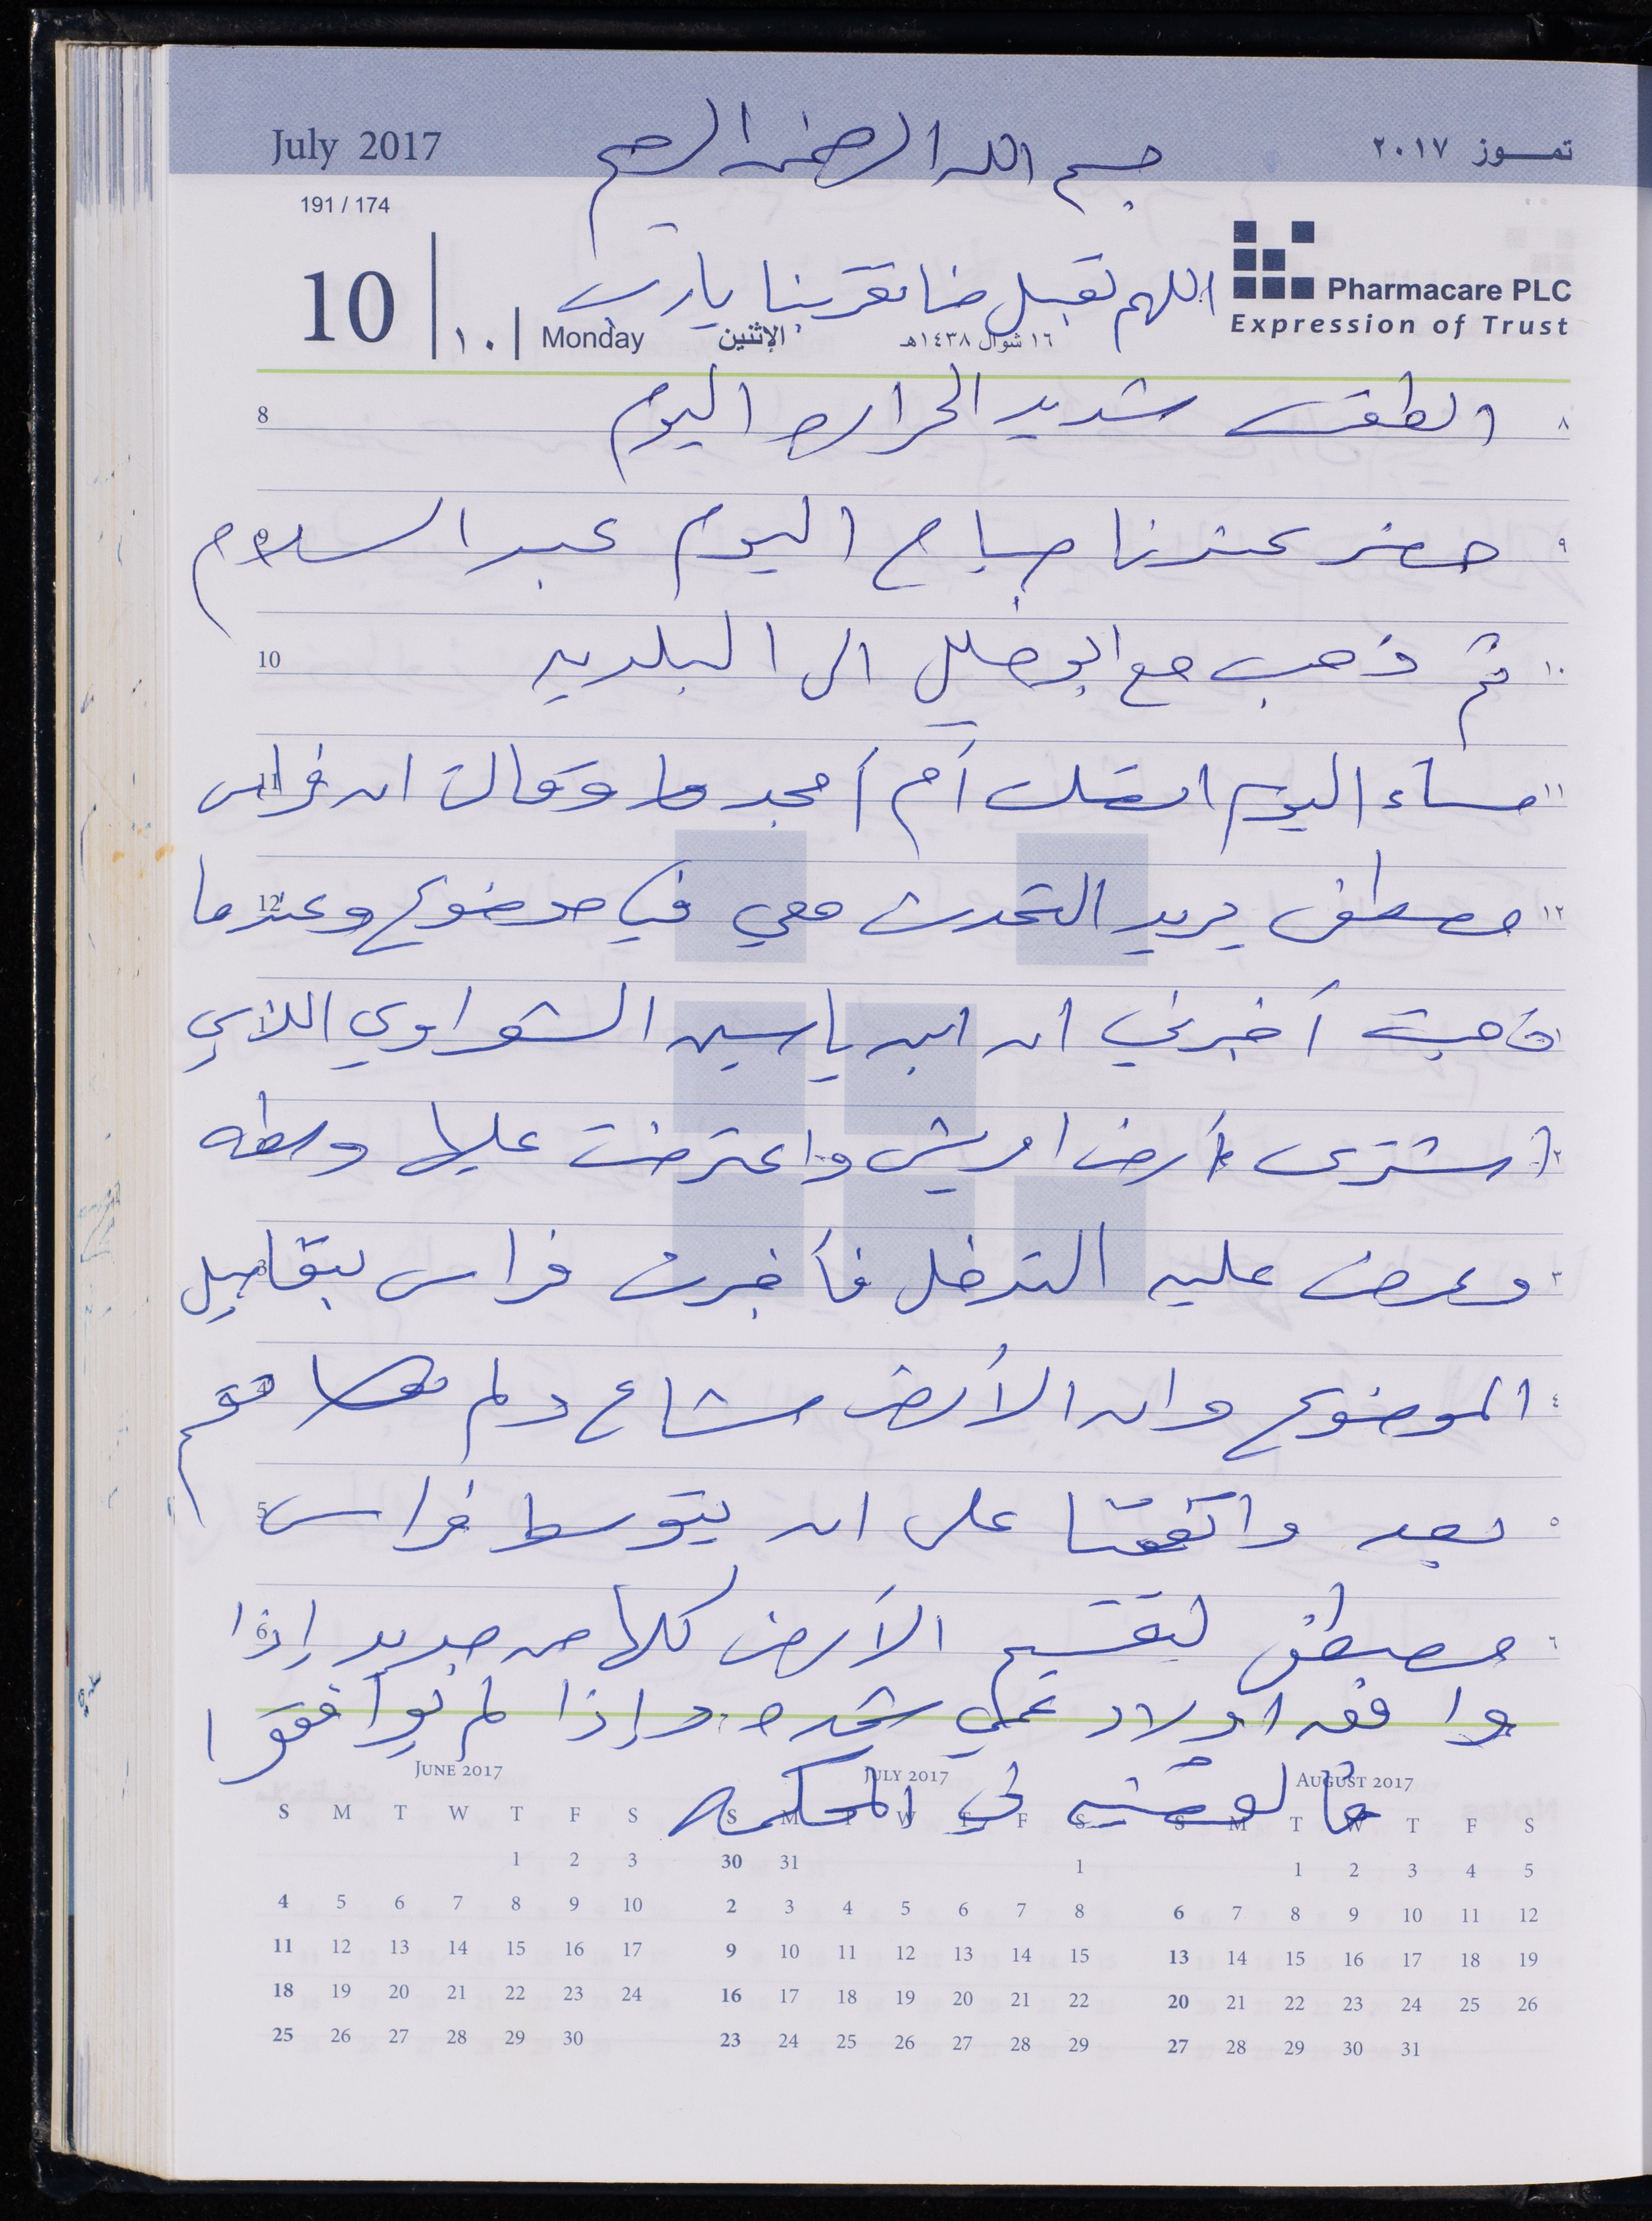 July 2017
بسم الله الرحمن الرحيم
تمـــوز ٢٠١٧
191 / 174
10
١٠
Monday
الإثنين
١٦ شوال ١٤٣٨هـ
Pharmacare PLC
Expression of Trust
اللهم تقبل منا تقربنا يا رب
8 الطقس شديد الحراره اليوم ٨
9 حضر عندنا صباح اليوم عبد السلام ٩
10 ثم ذهب مع ابو خليل الى البلديه ١٠
11 مساء اليوم اتصلت أم أمجد وقالت ان فراس ١١
12 مصطفى يريد التحدث معي في موضوع وعندما ١٢
ذهبت أخبرني ان ابن ياسين الشعراوي اللذي ١
اشترى أرض ادريش واعترضت عليها وسطه ٢
3 وعرض عليه التدخل فأخبرت فراس بتفاصيل ٣
4 الموضوع وان الأرض مشاع ولم تقسم ٤
5 بعد واتفقنا على ان يتوسط فراس ٥
6 مصطفى لتقسيم الأرض كلها من جديد إذا ٦
وافق اولاد عمي شحده وإذا لم يوافقوا
فالقضيه في المحكمه
JUNE 2017
S M T W T F S
1 2 3
4 5 6 7 8 9 10
11 12 13 14 15 16 17
18 19 20 21 22 23 24
25 26 27 28 29 30
JULY 2017
S M T W T F S
30 31 1
2 3 4 5 6 7 8
9 10 11 12 13 14 15
16 17 18 19 20 21 22
23 24 25 26 27 28 29
AUGUST 2017
S M T W T F S
1 2 3 4 5
6 7 8 9 10 11 12
13 14 15 16 17 18 19
20 21 22 23 24 25 26
27 28 29 30 31